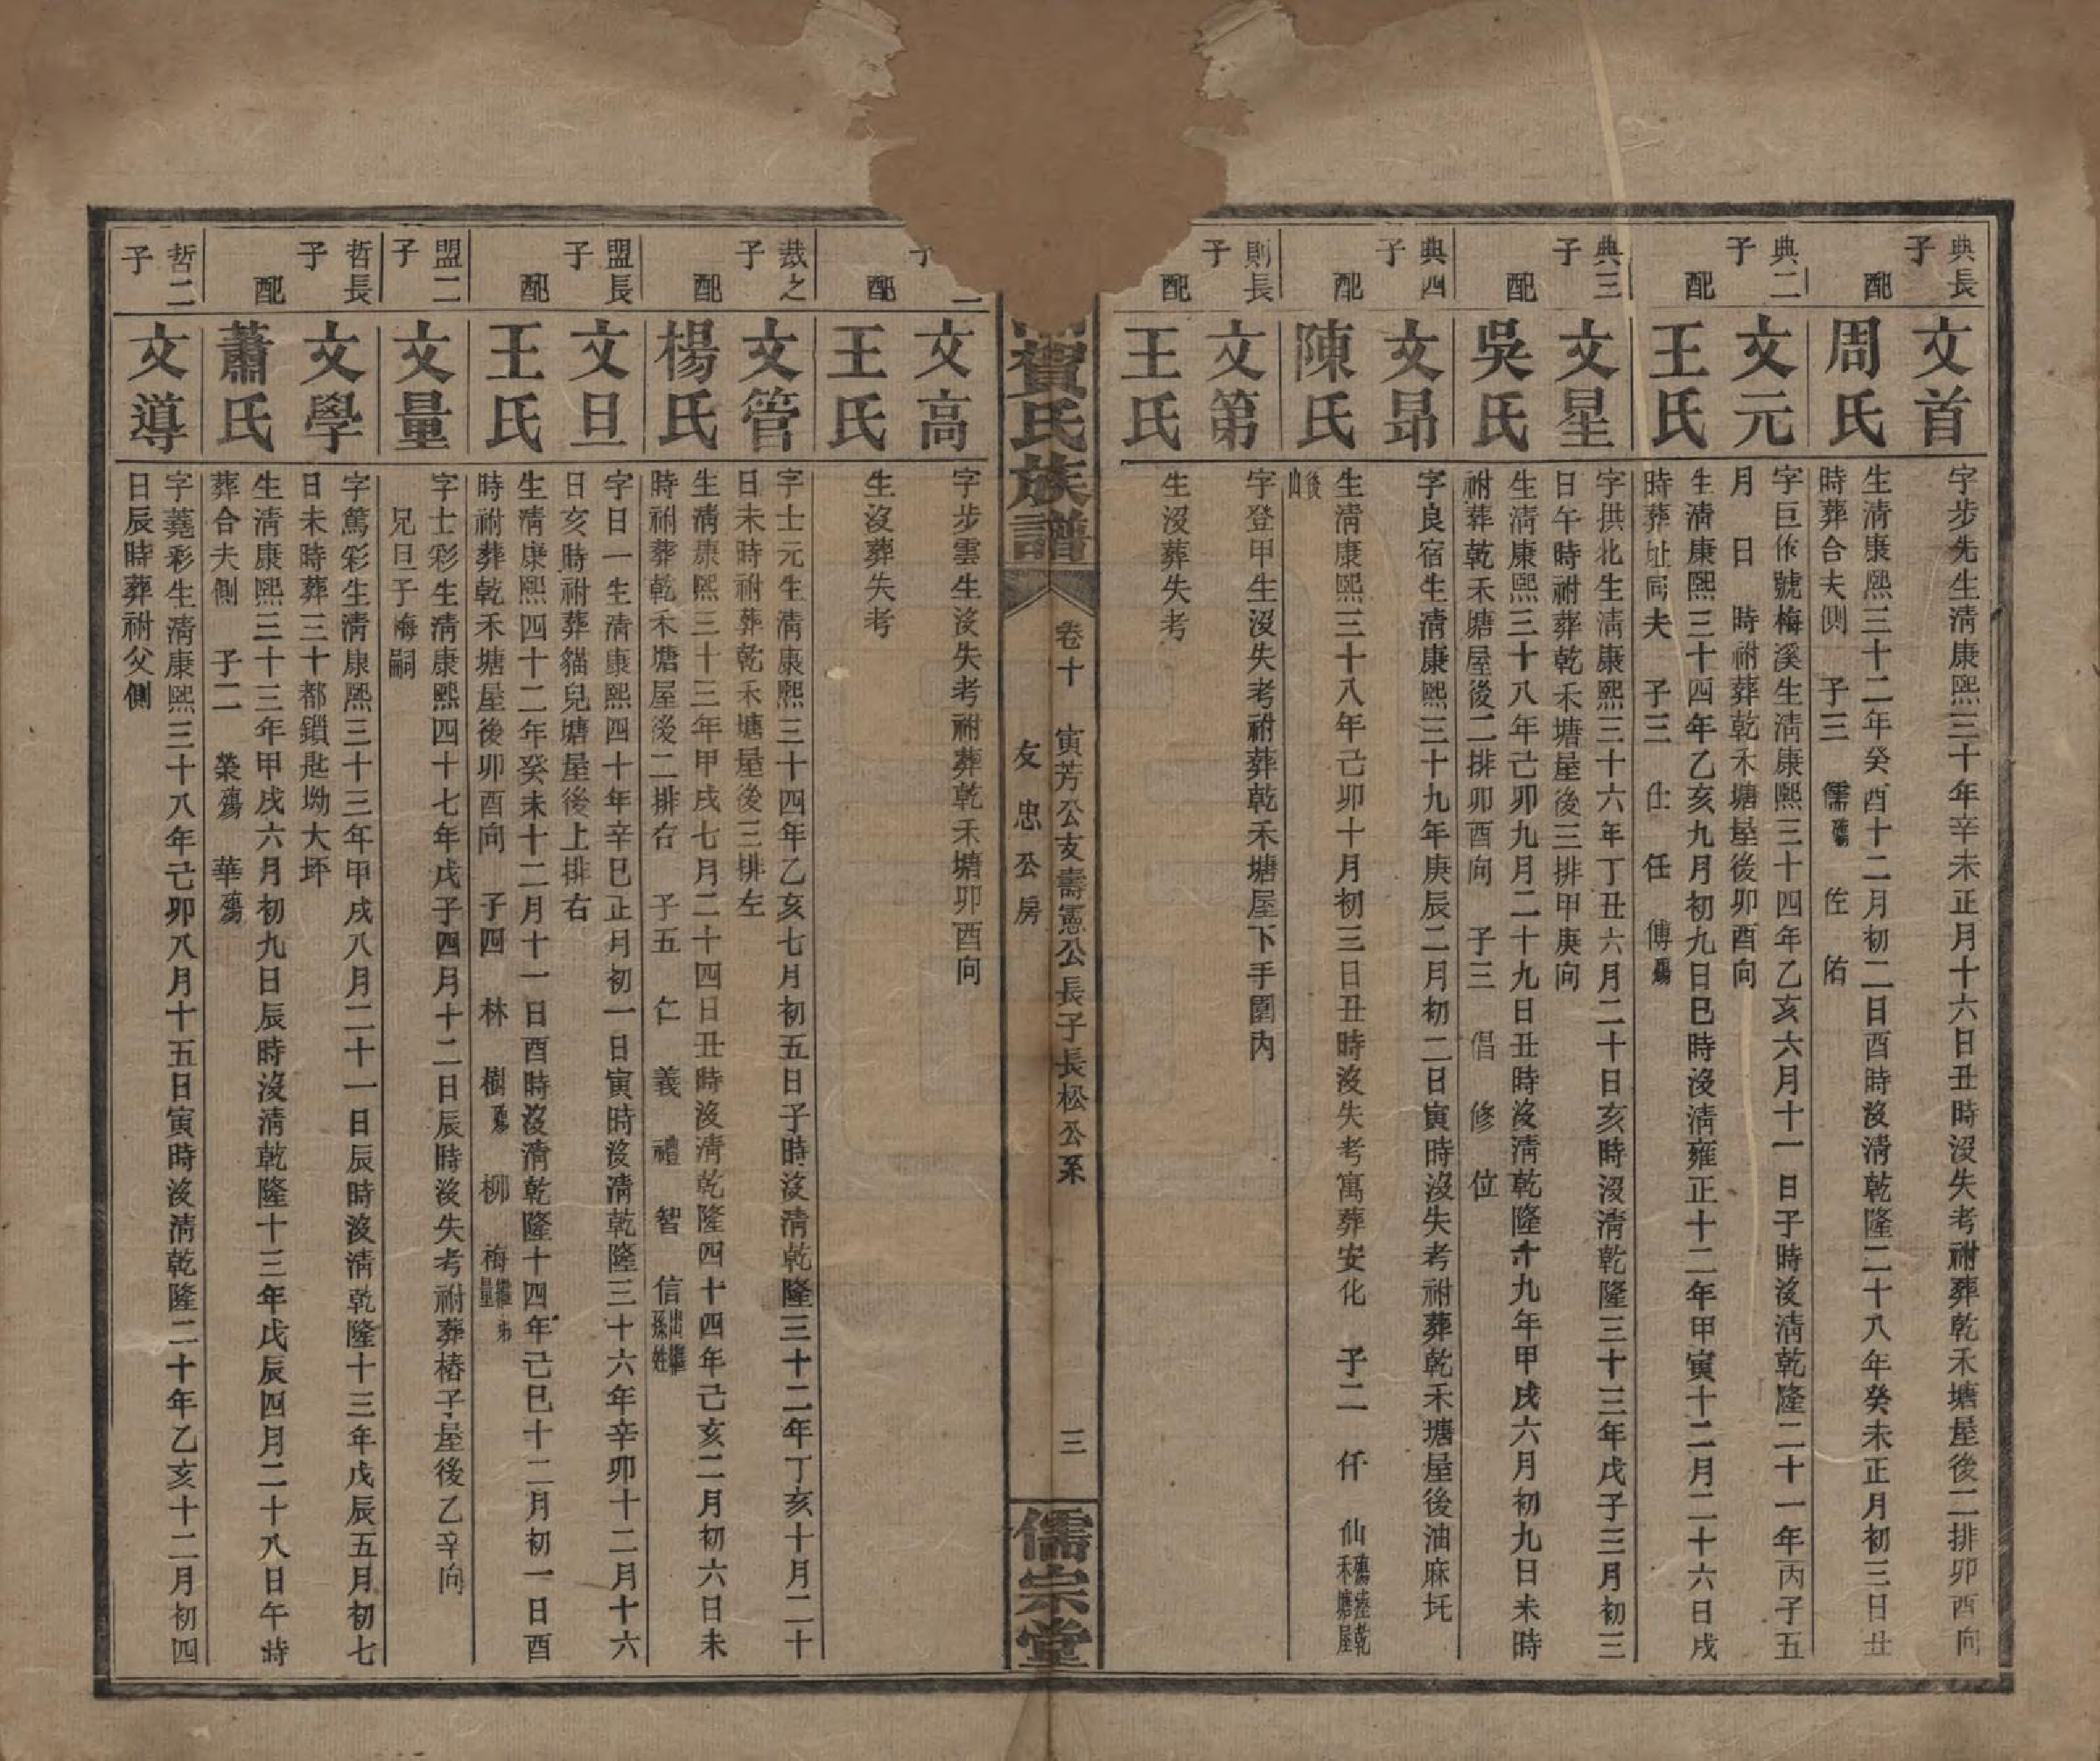 典長子
文首
字步先生清康熙三十年辛未正月十六日丑時沒失考祔葬乾禾塘屋後二排卯酉向
配
周氏
生清康熙三十二年癸酉十二月初二日酉時沒清乾隆二十八年癸未正月初三日丑
時葬合夫側 子三 儒殤 佐 佑
典二子
文元
字巨作號梅溪生清康熙三十四年乙亥六月十一日子時沒清乾隆二十一年丙子五
月 日 時祔葬乾禾塘屋後卯酉向
配
王氏
生清康熙三十四年乙亥九月初九日巳時沒清雍正十二年甲寅十二月二十六日戌
時葬址同夫 子三 仕 任 傅殤
典三子
文星
字拱北生清康熙三十六年丁丑六月二十日亥時沒清乾隆三十三年戊子三月初三
日午時祔葬乾禾塘屋後三排甲庚向
配
吳氏
生清康熙三十八年己卯九月二十九日丑時沒清乾隆十九年甲戌六月初九日未時
祔葬乾禾塘屋後二排卯酉向 子三 倡 修 位
典四子
文昴
字良宿生清康熙三十九年庚辰二月初二日寅時沒失考祔葬乾禾塘屋後油麻圫
配
陳氏
生清康熙三十八年己卯十月初三日丑時沒失考寓葬安化 子二 仟 仙殤塟乾禾塘屋
後山
則長子
文第
字登甲生沒失考祔葬乾禾塘屋下手園內
配
王氏
生沒葬失考
賀氏族譜
卷十 寅芳公支壽憲公長子長松公系
友忠公房
三
儒宗堂
二子
文高
字步雲生沒失考祔葬乾禾塘卯酉向
配
王氏
生沒葬失考
哉之子
文管
字士元生清康熙三十四年乙亥七月初五日子時沒清乾隆三十二年丁亥十月二十
日未時祔葬乾禾塘屋後三排左
配
楊氏
生清康熙三十三年甲戌七月二十四日丑時沒清乾隆四十四年己亥二月初六日未
時祔葬乾禾塘屋後二排右 子五 仁 義 禮 智 信出繼孫姓
盟長子
文旦
字日一生清康熙四十年辛巳正月初一日寅時沒清乾隆三十六年辛卯十二月十六
日亥時祔葬貓兒塘屋後上排右
配
王氏
生清康熙四十二年癸未十二月十一日酉時沒清乾隆十四年己巳十二月初一日酉
時祔葬乾禾塘屋後卯酉向 子四 林 樹殤 柳 梅繼弟量
盟二子
文量
字士彩生清康熙四十七年戊子四月十二日辰時沒失考祔葬樁子屋後乙辛向
兄旦子梅嗣
哲長子
文學
字篤彩生清康熙三十三年甲戌八月二十一日辰時沒清乾隆十三年戊辰五月初七
日未時葬三十都鎖匙坳大坪
配
蕭氏
生清康熙三十三年甲戌六月初九日辰時沒清乾隆十三年戊辰四月二十八日午時
葬合夫側 子二 榮殤 華殤
哲二子
文導
字蕘彩生清康熙三十八年己卯八月十五日寅時沒清乾隆二十年乙亥十二月初四
日辰時葬祔父側